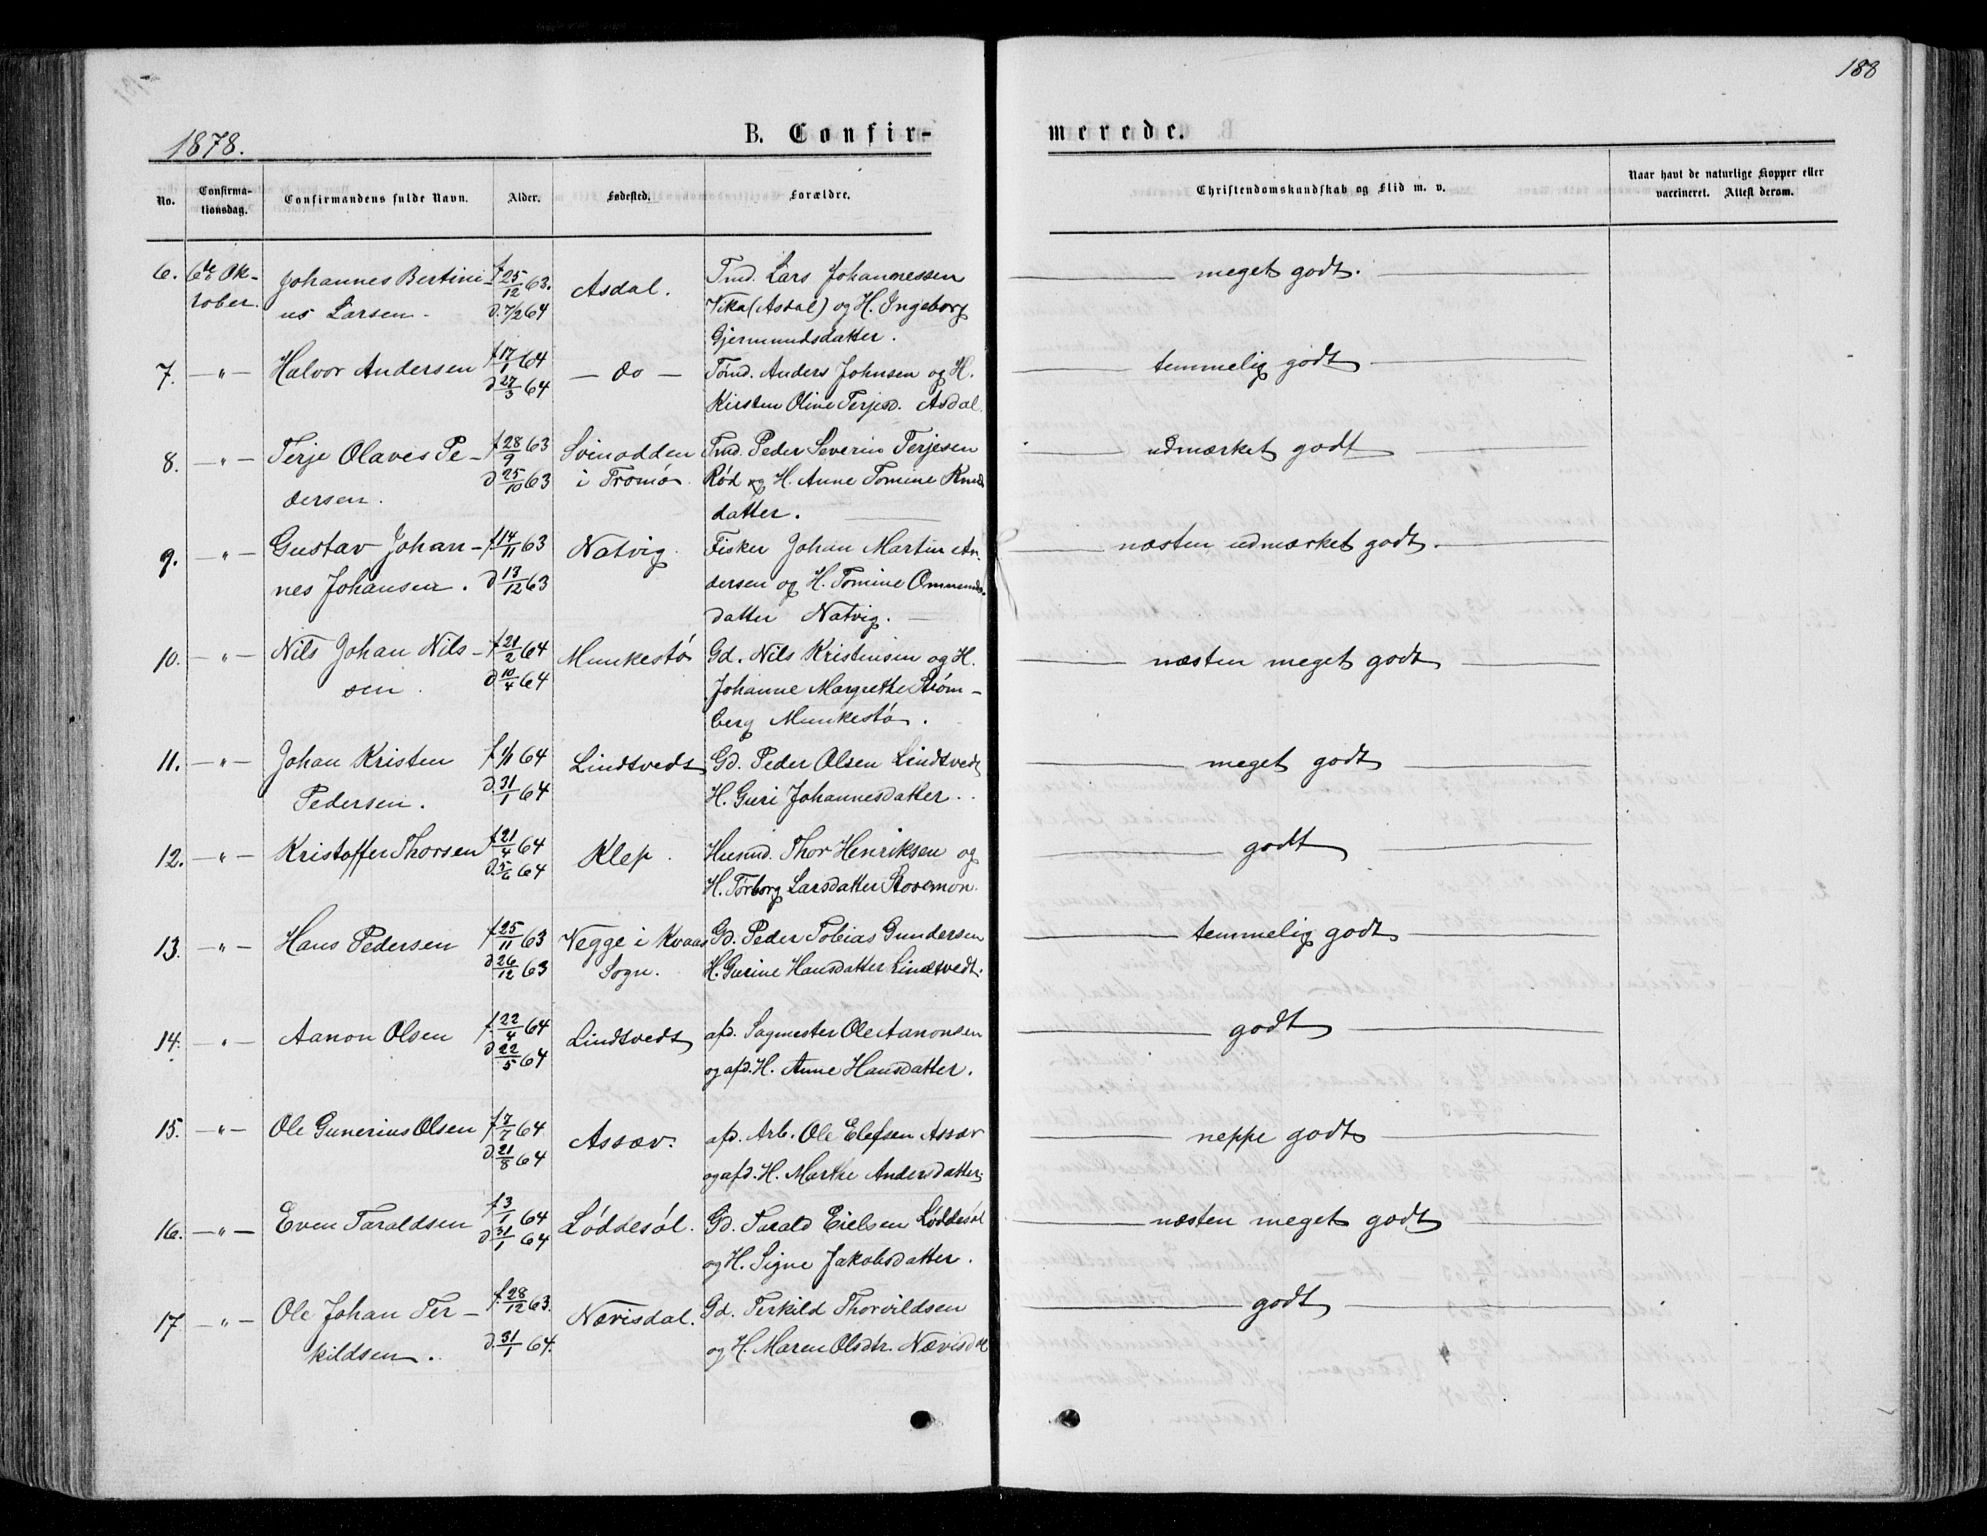 188
1878.
B. Confir-
merede.
No.
Confirma-
tionsdag.
Confirmandens fulde Navn.
Alder.
Fødested.
Forældre.
Christendomskundskab og Flid m. v.
Naar havt de naturlige Kopper eller
vaccineret. Attest derom.
6. 6te Ok- Johannes Bertini- f. 25/12 63. Asdal. Tmd. Lars Johannessen meget godt.
tober. us Larsen. d. 7/2 64 Vika (Asdal) og H. Ingeborg
Gjermundsdatter.
7. —"— Halvor Andersen f. 17/1 64 — do — Tømd. Anders Johnsen og H. temmelig godt
d. 27/3 64 Kirsten Oline Terjesd. Asdal.
8. —"— Terje Olaves Pe- f. 28/9 63 Svinodden Tmd. Peder Severin Terjesen udmærket godt
dersen. d. 25/10 63 i Tromø. Rød og H. Anne Tomine Knuds
datter.
9. —"— Gustav Johan- f. 14/11 63 Natvig. Fisker Johan Martin An- næsten udmærket godt.
nes Johansen. d. 13/12 63 dersen og H. Tomine Ommunds-
datter Natvig.
10. —"— Nils Johan Nils- f. 21/2 64 Munkestø Gd. Nils Kristensen og H. næsten meget godt
sen. d. 10/4 64 Johanne Margrethe Strøm-
berg Munkestø.
11. —"— Johan Kristen f. 1/1 64 Lindtvedt Gd. Peder Olsen Lindtvedt meget godt
Pedersen. d. 31/1 64 H. Guri Johannesdatter.
12. —"— Kristoffer Thorsen f. 21/4 64 Klep. Husmd. Thor Henriksen og godt
d. 5/6 64 H. Torborg Larsdatter Stovemon.
13. —"— Hans Pedersen f. 25/11 63 Vegge i Kvaas Gd. Peder Tobias Gundersen temmelig godt
d. 26/12 63 Sogn. H. Gurine Hansdatter Lindtvedt.
14. " Aanon Olsen f. 22/4 64 Lindtvedt afd. Sagmester Ole Aanonsen godt
d. 22/5 64 og afd. H. Anne Hansdatter.
15. —"— Ole Gunerius Olsen f. 7/7 64 Assæv. afd. Arb. Ole Elefsen Assæv neppe godt
d. 21/8 64 og afd. H. Marthe Andersdatter.
16. —"— Even Taraldsen f. 3/1 64 Løddesøl. Gd. Tarald Eielsen Løddesøl næsten meget godt
d. 31/1 64 og H. Signe Jakobsdatter.
17 —"— Ole Johan Ter- f. 28/12 63. Nævisdal. Gd. Terkild Thorvildsen godt
kildsen. d. 31/1 64. og H. Maren Olsdtr. Nævisdal